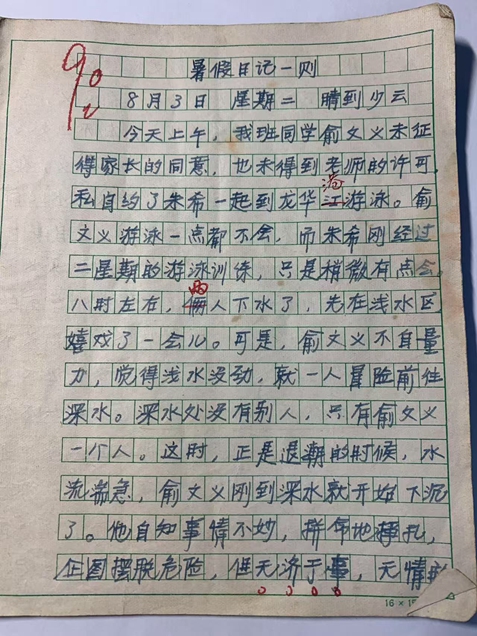 90
暑假日记一则
8月3日 星期二 晴到少云
今天上午，我班同学俞文义未征
得家长的同意，也未得到老师的许可，
私自约了朱希一起到龙华江游泳。俞
文义游泳一点都不会，而朱希刚经过
二星期的游泳训练，只是稍微有点会。
两
八时左右，俩人下水了，先在浅水区
嬉戏了一会儿。可是，俞文义不自量
力，觉得浅水没劲，就一人冒险前往
深水。深水处没有别人，只有俞文义
一个人。这时，正是退潮的时候，水
流湍急，俞文义刚到深水就开始下沉
了。他自知事情不妙，拼命地挣扎，
企图摆脱危险，但无济于事，无情的